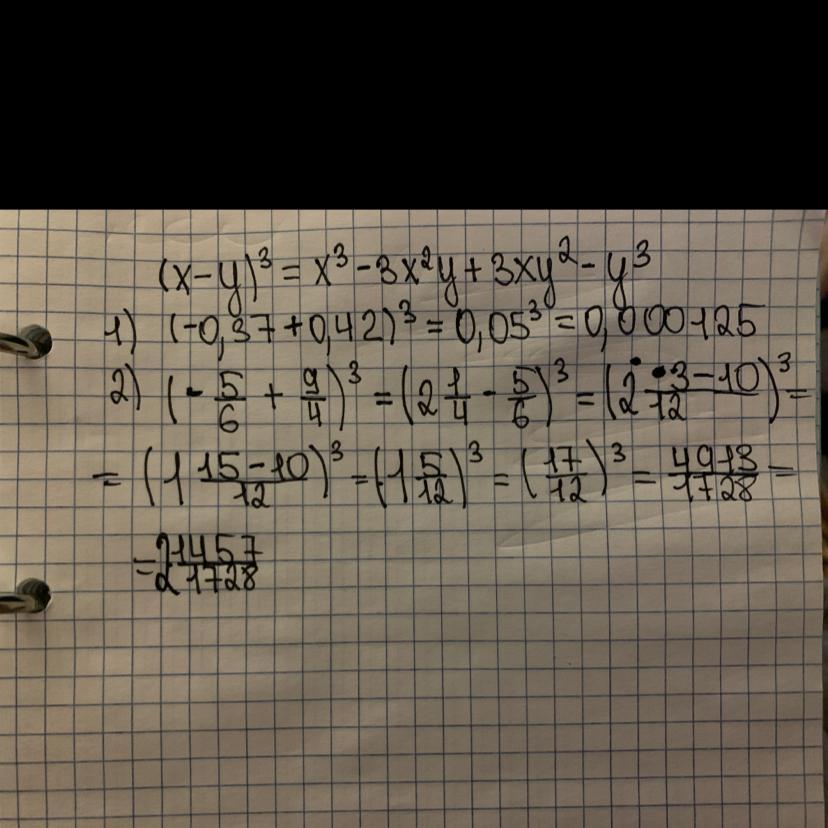 (x-y)³ = x³ - 3x²y + 3xy² - y³
1) (-0,37 + 0,42)³ = 0,05³ = 0,000125
2) (-5/6 + 9/4)³ = (2 1/4 - 5/6)³ = (2 3-10/12)³ =
= (1 15-10/12)³ = (1 5/12)³ = (17/12)³ = 4913/1728 =
= 2 1457/1728